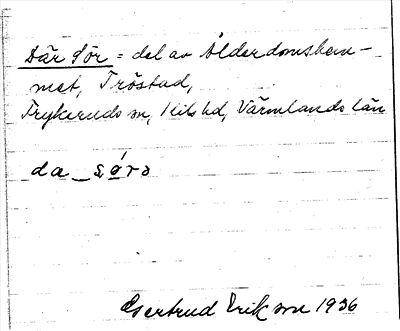 Där Sör = del av Ålderdomshem-
met, Tröstad,
Frykeruds sn, Kils hd, Värmlands län
da_sǿrə
Gertrud Erikson 1936